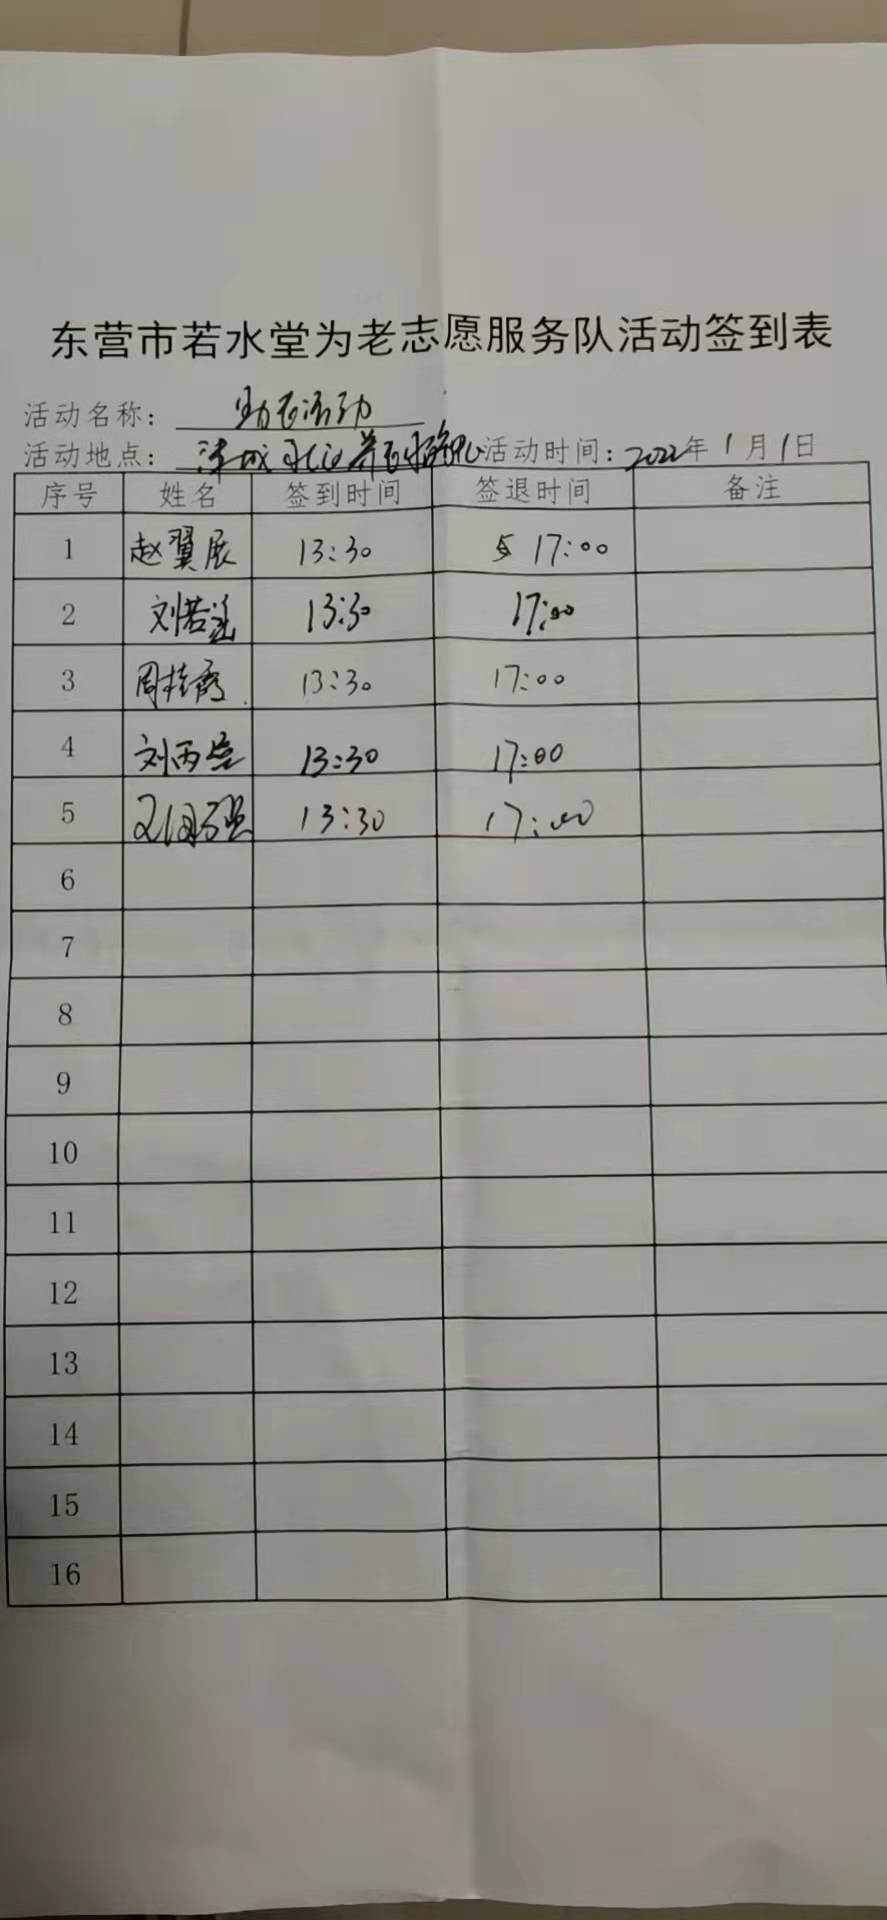 东营市若水堂为老志愿服务队活动签到表
活动名称：助老活动
活动地点： 养老服务中心 活动时间：2022年1月1日
序号 姓名 签到时间 签退时间 备注
1 赵翼展 13:30 17:00
2 刘若 13:30 17:00
3 周桂霞 13:30 17:00
4 刘丙 13:30 17:00
5 13:30 17:00
6
7
8
9
10
11
12
13
14
15
16